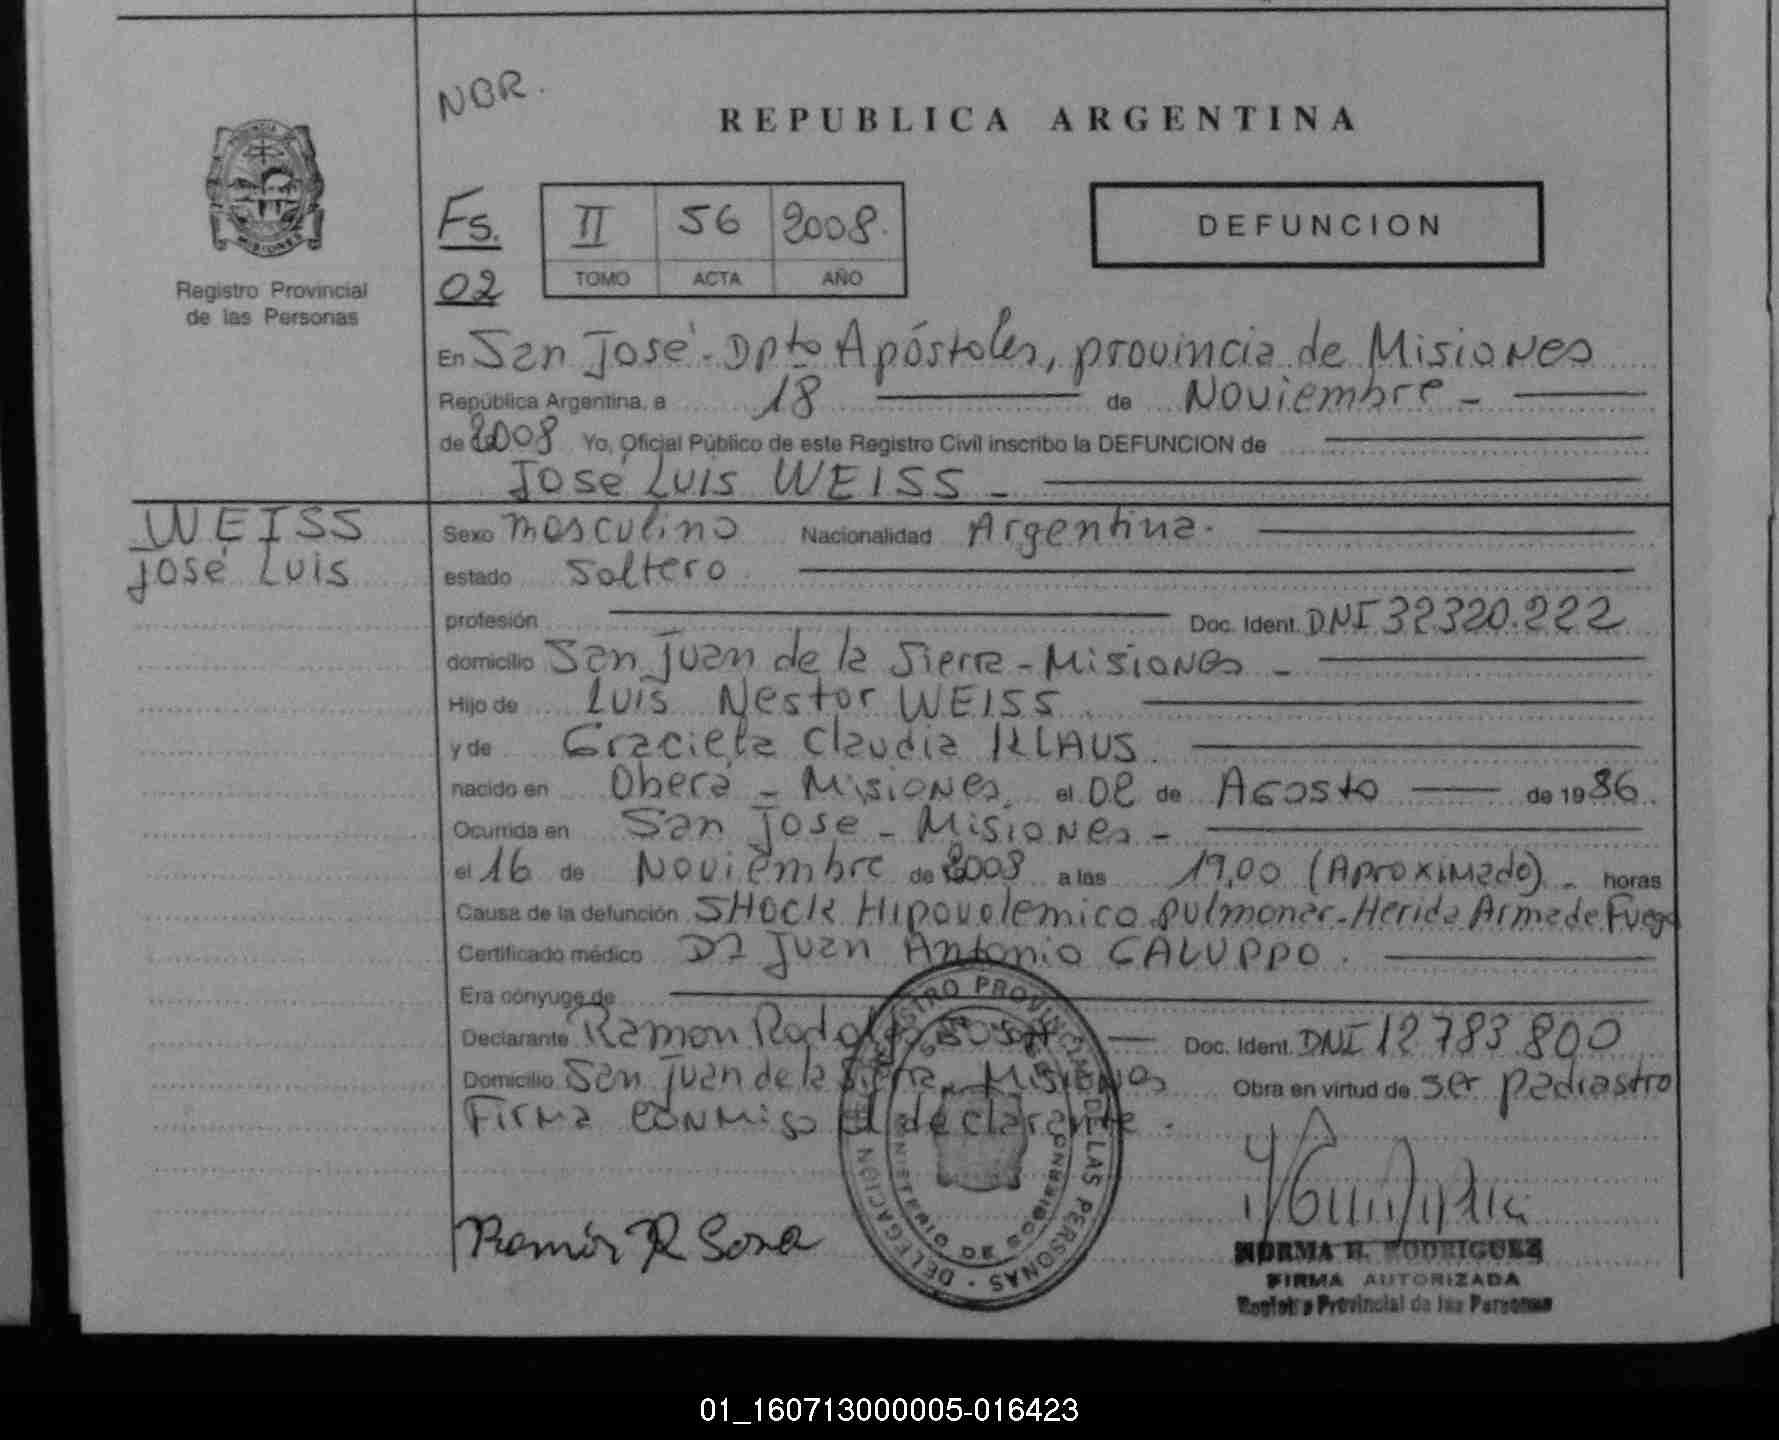 NBR.
REPUBLICA ARGENTINA
PROVINCIA
MISIONES
Fs.
02
II 56 2008.
TOMO ACTA AÑO
DEFUNCION
Registro Provincial
de las Personas
En San José - Dpto Apóstoles, provincia de Misiones
República Argentina, a 18 de Noviembre -
de 2008 Yo, Oficial Público de este Registro Civil inscribo la DEFUNCION de
José Luis WEISS -
WEISS
José Luis
Sexo masculino Nacionalidad Argentina.
estado Soltero
profesión Doc. Ident. DNI 32320.222
domicilio San Juan de la Sierra - Misiones -
Hijo de Luis Nestor WEISS
y de Graciela Claudia KLAUS
nacido en Oberá - Misiones el 02 de Agosto de 1986.
Ocurrida en San José - Misiones -
el 16 de Noviembre de 2008 a las 19,00 (Aproximado) - horas
Causa de la defunción SHOCK Hipovolemico pulmonar - Herida Arma de Fuego
Certificado médico Dr Juan Antonio CALUPPO.
Era cónyuge de
Declarante Ramon Rodolfo SOSA Doc. Ident. DNI 12 783 800
Domicilio San Juan de la Sierra - Misiones Obra en virtud de ser padrastro
Firma conmigo el declarante.
REGISTRO PROVINCIAL DE LAS PERSONAS - DELEGACION
MINISTERIO DE GOBIERNO
Ramón R Sosa
NORMA H. RODRIGUEZ
FIRMA AUTORIZADA
Registro Provincial de las Personas
01_160713000005-016423